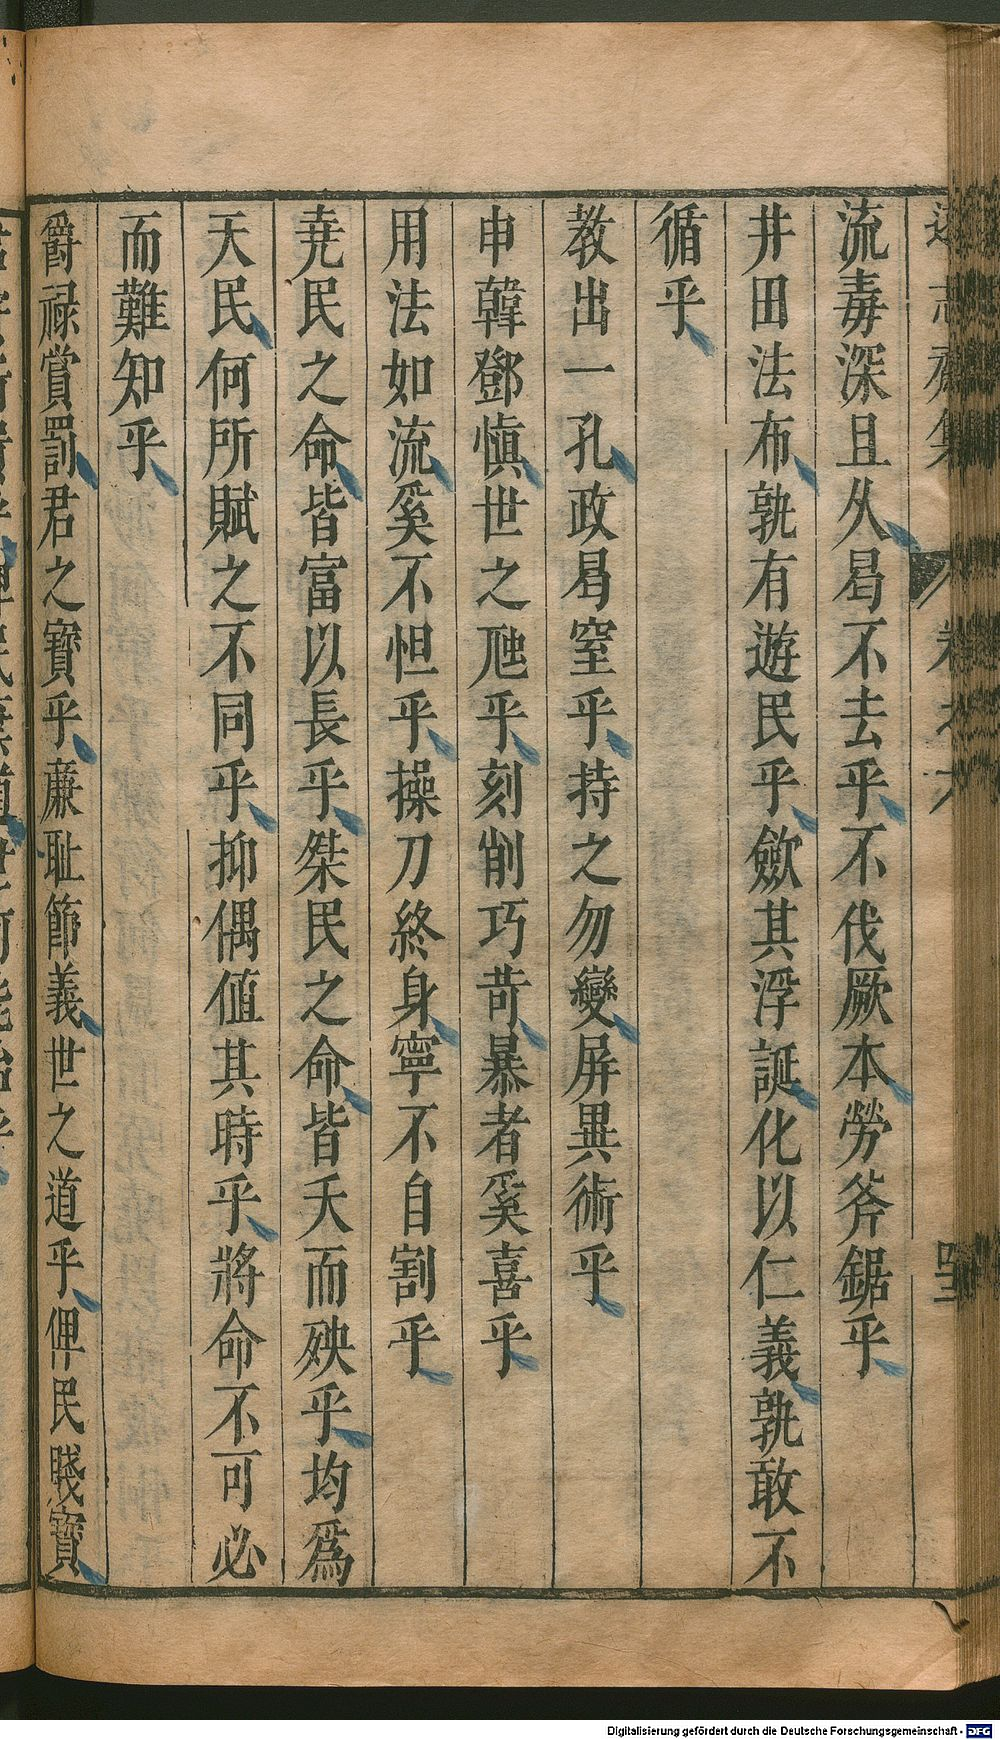 遜志齋集 卷之六
流毒深且久曷不去乎不伐厥本勞斧鋸乎
井田法布孰有遊民乎歛其浮誕化以仁義孰敢不
循乎
教出一孔政曷窒乎持之勿變屏異術乎
申韓鄧慎世之虺乎刻削巧苛暴者奚喜乎
用法如流奚不怛乎操刀終身寧不自割乎
堯民之命皆富以長乎桀民之命皆夭而殃乎均爲
天民何所賦之不同乎抑偶值其時乎將命不可必
而難知乎
爵祿賞罰君之寶乎廉耻節義世之道乎俾民賤寶
Digitalisierung gefördert durch die Deutsche Forschungsgemeinschaft - DFG